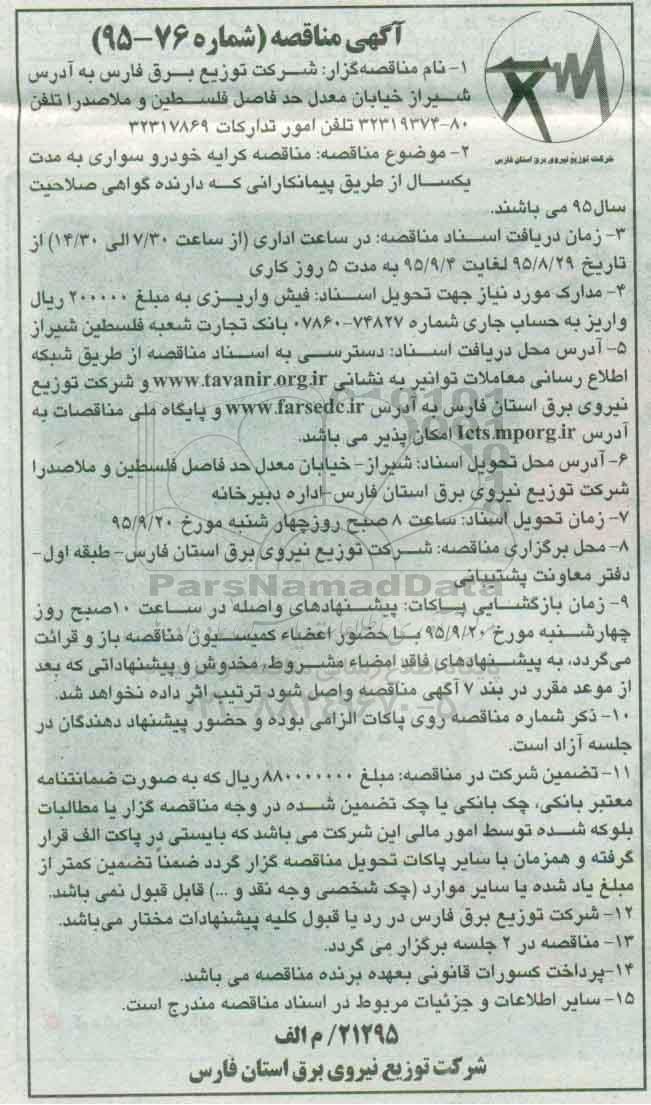 آگهی مناقصه (شماره ۷۶-۹۵)
۱- نام مناقصه‌گزار: شرکت توزیع برق فارس به آدرس
شیراز خیابان معدل حد فاصل فلسطین و ملاصدرا تلفن
۸۰-۳۲۳۱۹۳۷۴ تلفن امور تدارکات ۳۲۳۱۷۸۶۹
شرکت توزیع نیروی برق استان فارس
۲- موضوع مناقصه: مناقصه کرایه خودرو سواری به مدت
یکسال از طریق پیمانکارانی که دارنده گواهی صلاحیت
سال ۹۵ می باشند.
۳- زمان دریافت اسناد مناقصه: در ساعت اداری (از ساعت ۷/۳۰ الی ۱۴/۳۰) از
تاریخ ۹۵/۸/۲۹ لغایت ۹۵/۹/۴ به مدت ۵ روز کاری
۴- مدارک مورد نیاز جهت تحویل اسناد: فیش واریزی به مبلغ ۲۰۰۰۰۰ ریال
واریز به حساب جاری شماره ۷۴۸۲۷-۰۷۸۶۰ بانک تجارت شعبه فلسطین شیراز
۵- آدرس محل دریافت اسناد: دسترسی به اسناد مناقصه از طریق شبکه
اطلاع رسانی معاملات توانیر به نشانی www.tavanir.org.ir و شرکت توزیع
نیروی برق استان فارس به آدرس www.farsedc.ir و پایگاه ملی مناقصات به
آدرس Icts.mporg.ir امکان پذیر می باشد.
۶- آدرس محل تحویل اسناد: شیراز- خیابان معدل حد فاصل فلسطین و ملاصدرا
شرکت توزیع نیروی برق استان فارس-اداره دبیرخانه
۷- زمان تحویل اسناد: ساعت ۸ صبح روز چهار شنبه مورخ ۹۵/۹/۲۰
۸- محل برگزاری مناقصه: شرکت توزیع نیروی برق استان فارس- طبقه اول-
دفتر معاونت پشتیبانی
ParsNamadData
۹- زمان بازگشایی پاکات: پیشنهادهای واصله در ساعت ۱۰صبح روز
چهارشنبه مورخ ۹۵/۹/۲۰ با حضور اعضاء کمیسیون مناقصه باز و قرائت
می‌گردد، به پیشنهادهای فاقد امضاء مشروط، مخدوش و پیشنهاداتی که بعد
از موعد مقرر در بند ۷ آگهی مناقصه واصل شود ترتیب اثر داده نخواهد شد.
۱۰- ذکر شماره مناقصه روی پاکات الزامی بوده و حضور پیشنهاد دهندگان در
جلسه آزاد است.
۱۱- تضمین شرکت در مناقصه: مبلغ ۸۸۰۰۰۰۰۰۰ ریال که به صورت ضمانتنامه
معتبر بانکی، چک بانکی یا چک تضمین شده در وجه مناقصه گزار یا مطالبات
بلوکه شده توسط امور مالی این شرکت می باشد که بایستی در پاکت الف قرار
گرفته و همزمان با سایر پاکات تحویل مناقصه گزار گردد ضمناً تضمین کمتر از
مبلغ یاد شده یا سایر موارد (چک شخصی وجه نقد و ...) قابل قبول نمی باشد.
۱۲- شرکت توزیع برق فارس در رد یا قبول کلیه پیشنهادات مختار می‌باشد.
۱۳- مناقصه در ۲ جلسه برگزار می گردد.
۱۴-پرداخت کسورات قانونی بعهده برنده مناقصه می باشد.
۱۵- سایر اطلاعات و جزئیات مربوط در اسناد مناقصه مندرج است.
۲۱۲۹۵/ م الف
شرکت توزیع نیروی برق استان فارس